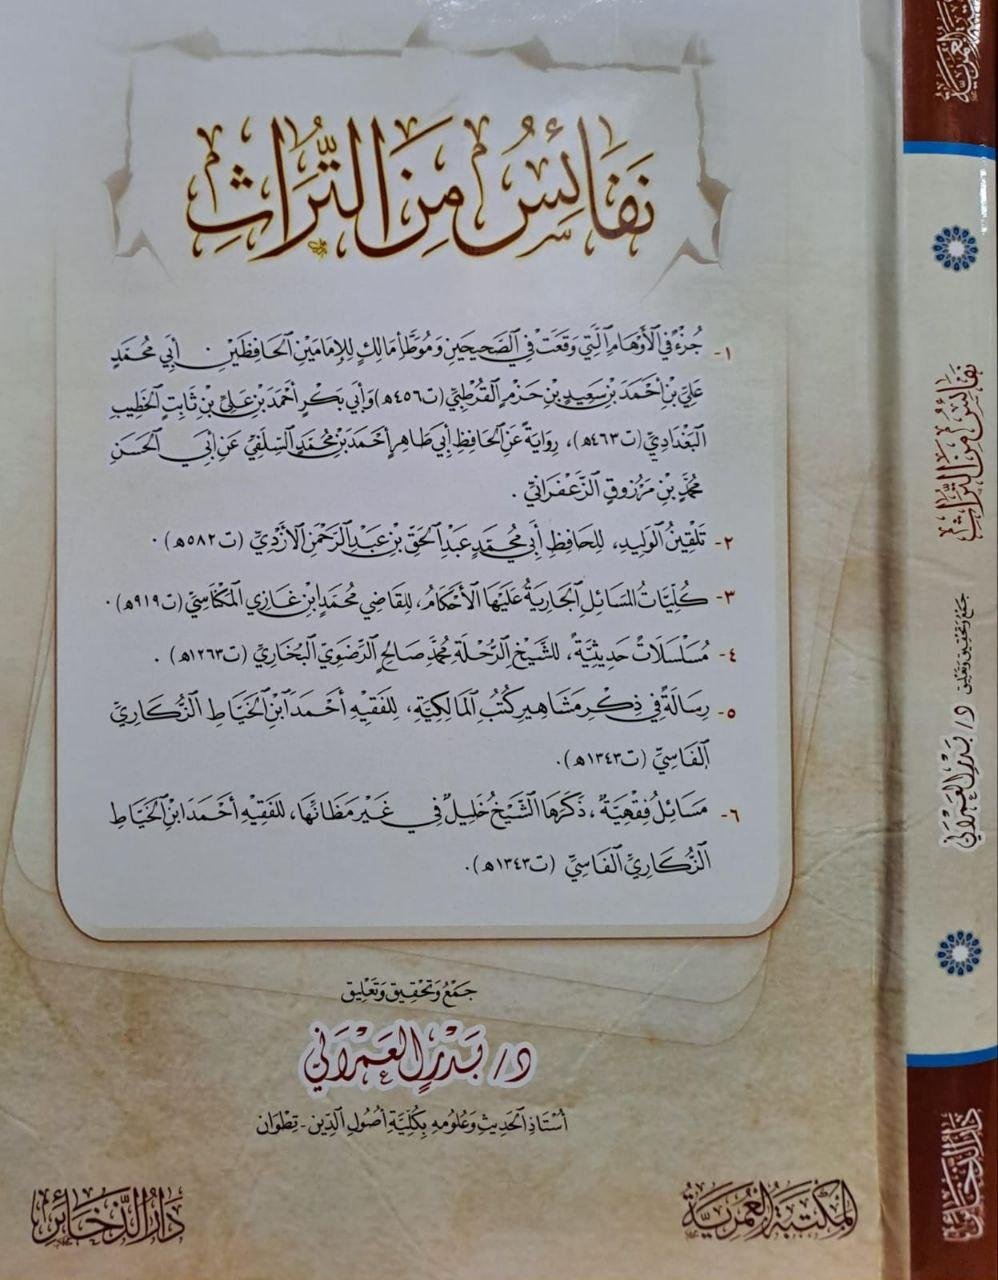 نَفَائِسُ مِنَ التُّرَاثِ
١- جُزْءٌ فِي الأَوْهَامِ الَّتِي وَقَعَتْ فِي الصَّحِيحَيْنِ وَمُوَطَّأِ مَالِكٍ لِلإِمَامَيْنِ الحَافِظَيْنِ · أَبِي مُحَمَّدٍ
عَلِيِّ بْنِ أَحْمَدَ بْنِ سَعِيدِ بْنِ حَزْمٍ القُرْطُبِيِّ (ت٤٥٦ه) وَأَبِي بَكْرٍ أَحْمَدَ بْنِ عَلِيِّ بْنِ ثَابِتٍ الخَطِيبِ
البَغْدَادِيِّ (ت٤٦٣ه)، رِوَايَةً عَنِ الحَافِظِ أَبِي طَاهِرٍ أَحْمَدَ بْنِ مُحَمَّدٍ السِّلَفِيِّ عَنْ أَبِي الحَسَنِ
مُحَمَّدِ بْنِ مَرْزُوقٍ الزَّعْفَرَانِيِّ .
٢- تَلْقِينُ الوَلِيدِ، لِلحَافِظِ أَبِي مُحَمَّدٍ عَبْدِ الحَقِّ بْنِ عَبْدِ الرَّحْمَنِ الأَزْدِيِّ (ت٥٨٢ه) .
٣- كُلِّيَاتُ المَسَائِلِ الجَارِيَةُ عَلَيْهَا الأَحْكَامُ، لِلقَاضِي مُحَمَّدِ ابْنِ غَازِي المِكْنَاسِيِّ (ت٩١٩ه) .
٤- مُسَلْسَلَاتٌ حَدِيثِيَّةٌ، لِلشَّيْخِ الرُّحْلَةِ مُحَمَّد صَالِحٍ الرَّضَوِيِّ البُخَارِيِّ (ت١٢٦٣ه) .
٥- رِسَالَةٌ فِي ذِكْرِ مَشَاهِيرِ كُتُبِ المَالِكِيَّةِ، لِلفَقِيهِ أَحْمَدَ ابْنِ الخَيَّاطِ الزُّكَارِيِّ
الفَاسِيِّ (ت١٣٤٣ه) .
٦- مَسَائِلُ فِقْهِيَّةٌ، ذَكَرَهَا الشَّيْخُ خَلِيلٌ فِي غَيْرِ مَظَانِّهَا، لِلفَقِيهِ أَحْمَدَ ابْنِ الخَيَّاطِ
الزُّكَارِيِّ الفَاسِيِّ (ت١٣٤٣ه) .
جَمْعُ وَتَحْقِيق وَتَعْلِيق
د/ بَدْر العَمْرَانِي
أُسْتَاذِ الحَدِيثِ وَعُلُومِهِ بِكُلِّيَّةِ أُصُولِ الدِّينِ - تِطْوَان
المَكْتَبَةُ العُمَرِيَّةُ
دَارُ الذَّخَائِرِ
المَكْتَبَةُ العُمَرِيَّةُ
نَفَائِسُ مِنَ التُّرَاثِ
جَمْعُ وَتَحْقِيق وَتَعْلِيق
د/ بَدْر العَمْرَانِي
دَارُ الذَّخَائِرِ